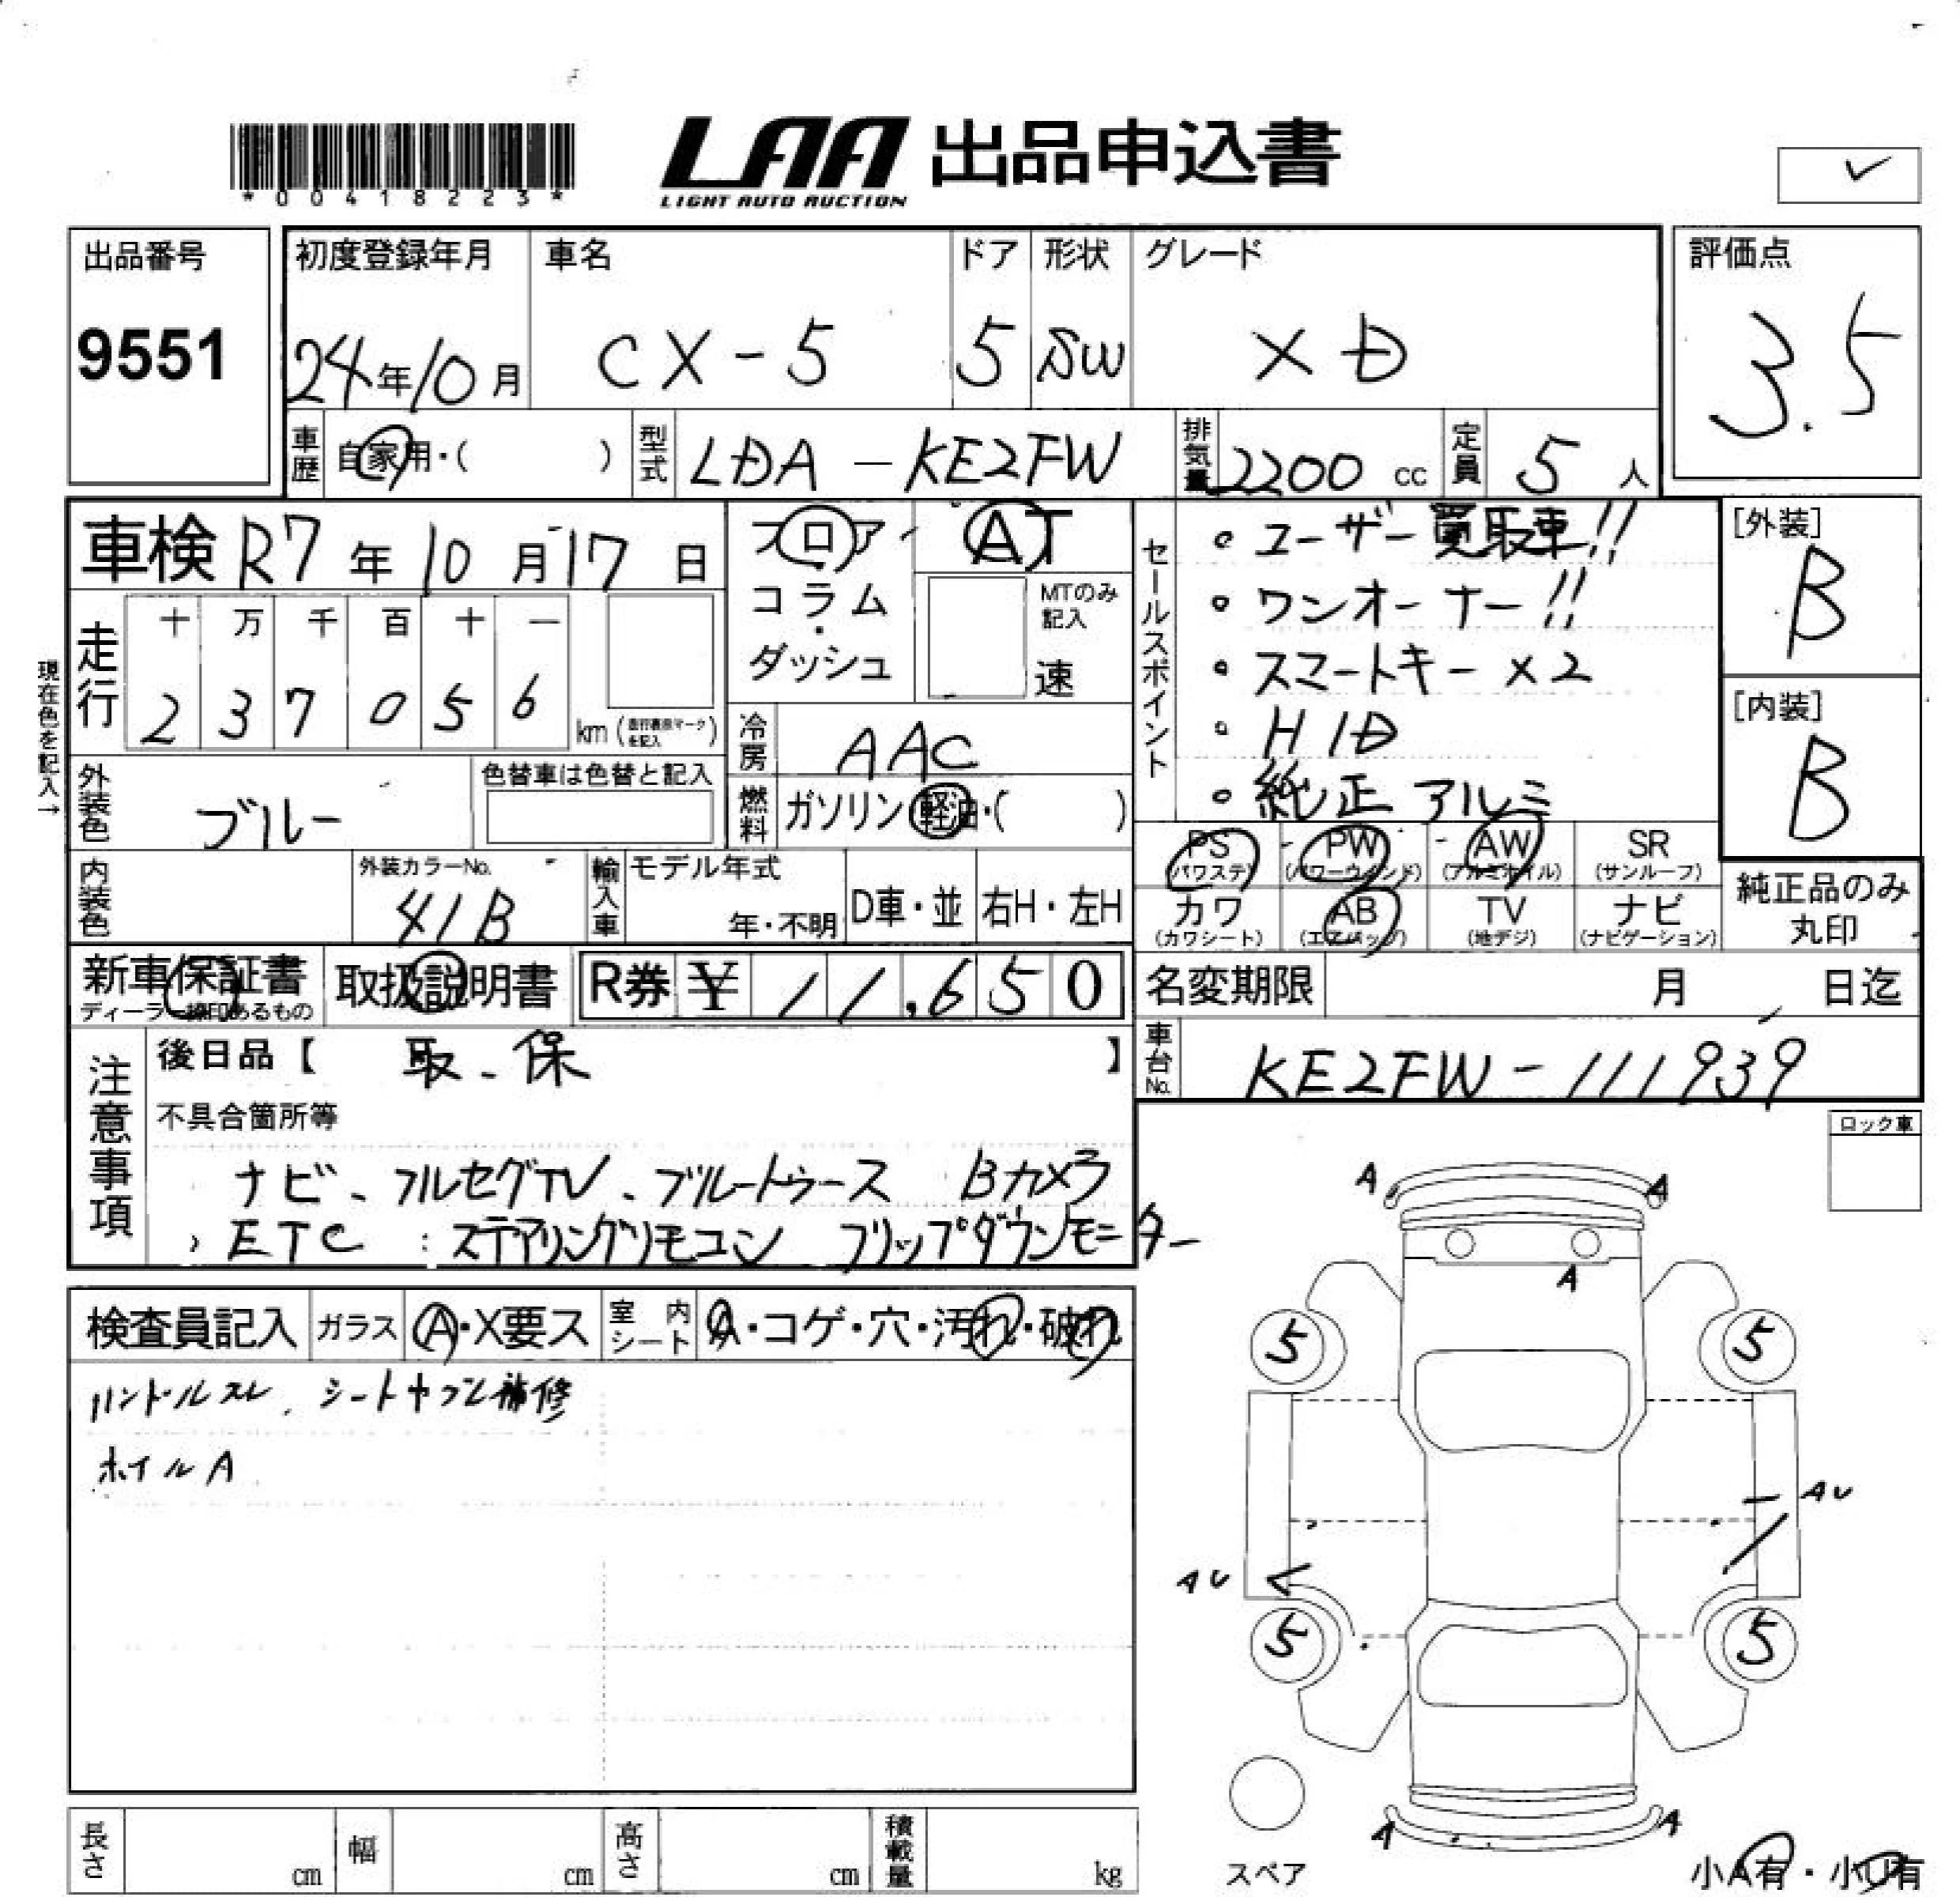 *00418223*
LAA 出品申込書
LIGHT AUTO AUCTION
出品番号 初度登録年月 車名 ドア 形状 グレード 評価点
9551 24年10月 CX-5 5 SW XD 3.5
車歴 自家用・( ) 型式 LDA-KE2FW 排気量 2200 cc 定員 5 人
車検 R7年10月17日 フロア・コラム・ダッシュ AT
MTのみ記入 速
現在色を記入→
走行 十 万 千 百 十 一
2 3 7 0 5 6 km
冷房 AAC
外装色 ブルー 色替車は色替と記入
燃料 ガソリン・軽油・( )
内装色 外装カラーNo. 41B 輸入車 モデル年式 年・不明 D車・並 右H・左H
セールスポイント
。ユーザー買取車!!
。ワンオーナー!!
。スマートキー×2
。HID
。純正アルミ
[外装] B
[内装] B
PS (パワステ) PW (パワーウインド) AW (アルミホイル) SR (サンルーフ)
カワ (カワシート) AB (エアバッグ) TV (地デジ) ナビ (ナビゲーション)
純正品のみ丸印
新車保証書 取扱説明書 R券 ¥ 11,650
名変期限 月 日迄
車台No. KE2FW-111939
注意事項
後日品【 取、保 】
不具合箇所等
ナビ、フルセグTV、ブルートゥース Bカメラ
ETC ステアリングリモコン フリップダウンモニター
ロック車
検査員記入 ガラス A・X要ス 室内シート A・コゲ・穴・汚れ・破れ
ハンドルスレ、シートヤブレ補修
ホイルA
A A
A
5 5
AU
AU
5 5
A A
スペア
小A有・小U有
長さ cm 幅 cm 高さ cm 積載量 kg